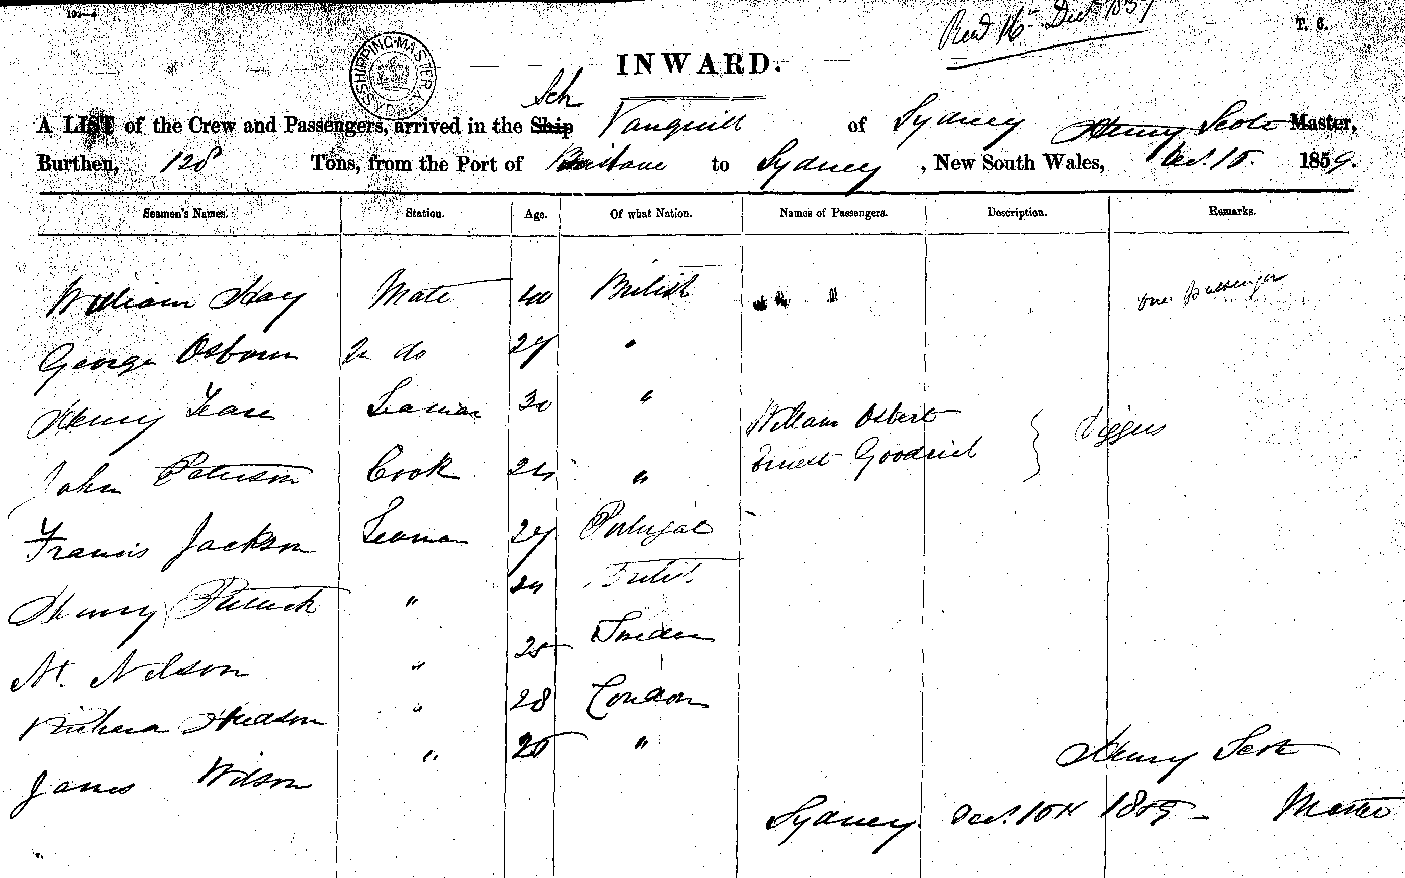 Recd 16th Decr 1859
T. 6.
SHIPPING MASTER
INWARD.
Sch
A LIST of the Crew and Passengers, arrived in the Ship Vanquish of Sydney Henry Scott Master,
Burthen, 128 Tons, from the Port of Brisbane to Sydney, New South Wales, Dec. 15 1859.
Seamen's Names. Station. Age. Of what Nation. Names of Passengers. Description. Remarks.
William Hay Mate 40 British Passenger
George Osborn 2 do 27 "
Henry Seaman 30 "
William Osbert
Ernest Goodrich } Diggers
John Paterson Cook 24 "
Francis Jackson Seaman 27 Portugal
Henry " 24
N. Nilson " 25 Sweden
Richard Hudson " 28 London
James Wilson " 25 "
Henry Scott
Sydney Dec. 15th 1859 - Master